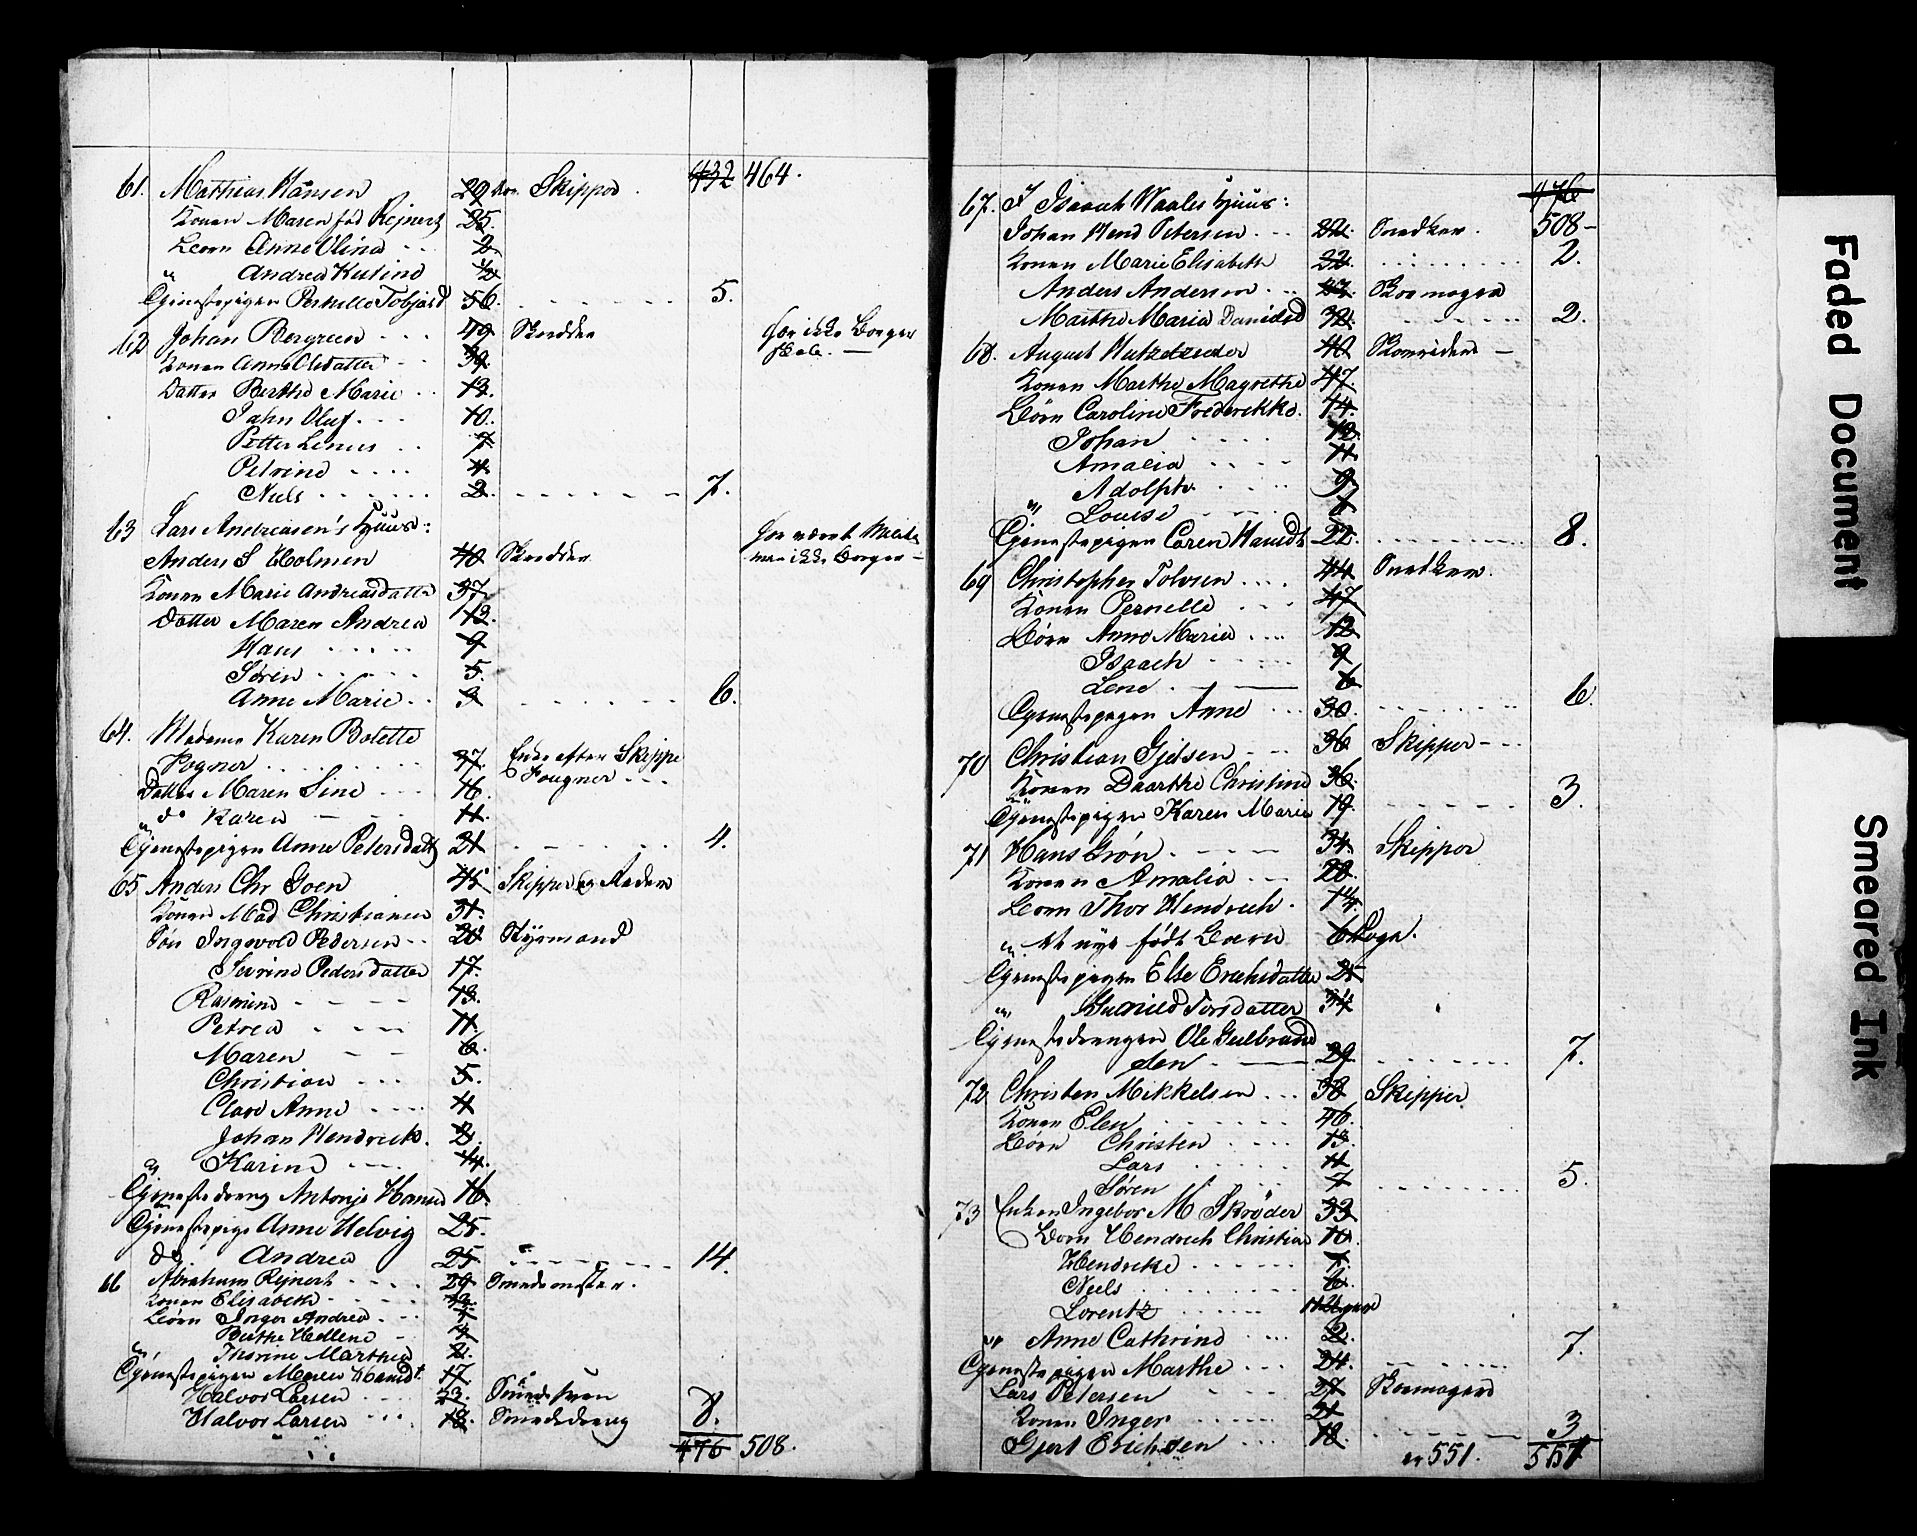 432 464.
61. Mathias Hansen 29 Skipper.
Konen Maren fød Rejnert 25.
Børn Anne Olina 2
" Andrea Kistine ½
Tjenestepigen Pernille Tobjørd 56. 5.
62 Johan Bergreen 49 Skredder har ikke Borger
Konen Anne Olsdatter 39.
Datter Berthe Marie 13.
Jahn Oluf 10.
Petter Linus 7
Petrine 4
Niels 2 7.
63 Lars Andreasen's Huus:
Anders S Holmen 40 Skredder ikke Borger
Konen Marie Andreasdatter 37.
Datter Maren Andrea 13.
Hans 9
Søren 5.
Anne Marie 3 6.
64. Madame Karen Bolette
Fogner 37. Enke efter Skipper
Fougner
Datter Maren Sine 16.
" do Karen 11.
Tjenestepigen Anne Petersdatt 21 4.
65 Anders Chr Goen 45 Skipper og Reder
Konen Mad Christiansen 31.
Søn Ingevold Pedersen 20 Styrmand
Serine Pedersdatter 17.
Rasmine 13.
Petrea 11.
Maren 6.
Christian 5.
Clare Anne 4
Johan Hendrick. 2.
" Karine ¼.
Tjenestedreng Antonje Hansen 16
Tjenestepige Anne Helvig 25.
do Andrea 25 14.
66 Abraham Rejnert 29 Smedemester.
Konen Elisabeth
Børn Inger Andrea
Berthe Hellene 4
" Thorine Marthea 2.
Tjenestepigen Maren Hansdt 17.
Halvor Larsen 23. Smedesven
Halvor Larsen 18. Smededreng 8.
476 508.
476
67. I Isaach Waales Huus:
Johan Hend Petersen 22. Snedker. 508-
Konen Marie Elisabeth 22. 2.
Anders Andersen 27. Skomager
Marthe Maria Danielsd 32. 2.
68. August Hutzelzeder 40 Skomrider
Konen Marthe Magrethe 47.
Børn Caroline Frederikke. 14.
Johan 12.
Amalia 11.
Adolph 9
" Louise 6
Tjenestepigen Caren Hansdt 22. 8.
69 Christopher Tolvsen 44 Snedker.
Konen Pernelle 47
Børn Anne Maria 12
Isaach 9
Lene 6
Tjenestepigen Anne 30. 6.
70 Christian Gjelsen 36 Skipper
Konen Daarthe Christine 36.
Tjenestepigen Karen Marie 19. 3.
71 Hans Grøn 34. Skipper
Konen Amalia 20.
Børn Thor Hendrich. 1¼.
" Et nye født Barn 6 Dage.
Tjenestepigen Else Erichsdatter 25
" Gunild Torsdatter 34
Tjenestedrengen Ole Gulbrand
sen 29. 7.
72 Christen Mikkelsen 38 Skipper
Konen Elen 46.
Børn Christen 13.
Lars 11
Søren 7 5.
73 Enken Ingebor M Skrøder 33
Børn Hendrich Christian 10.
Hendrike 7
Neels 6.
Lorentz
" Anne Cathrine 2. 7.
Tjenestepigen Marthe 24.
Lars Petersen 27 Skomager
Konen Inger 21
Gjert Erichsen 18. 3
er 551. 551
Faded Document
Smeared Ink